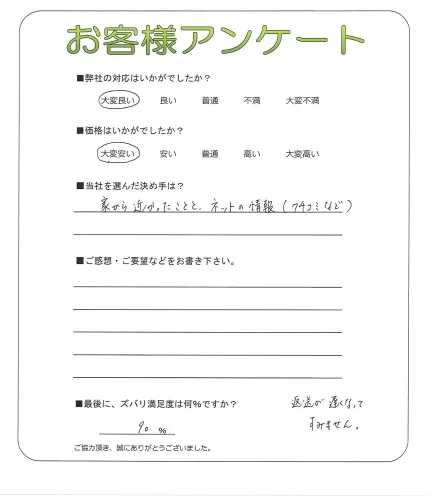 お客様アンケート
■弊社の対応はいかがでしたか?
大変良い 良い 普通 不満 大変不満
■価格はいかがでしたか?
大変安い 安い 普通 高い 大変高い
■当社を選んだ決め手は?
家から近かったことと、ネットの情報(クチコミなど)
■ご感想・ご要望などをお書き下さい。
■最後に、ズバリ満足度は何%ですか?
90 %
返送が遅くなって
すみません。
ご協力頂き、誠にありがとうございました。